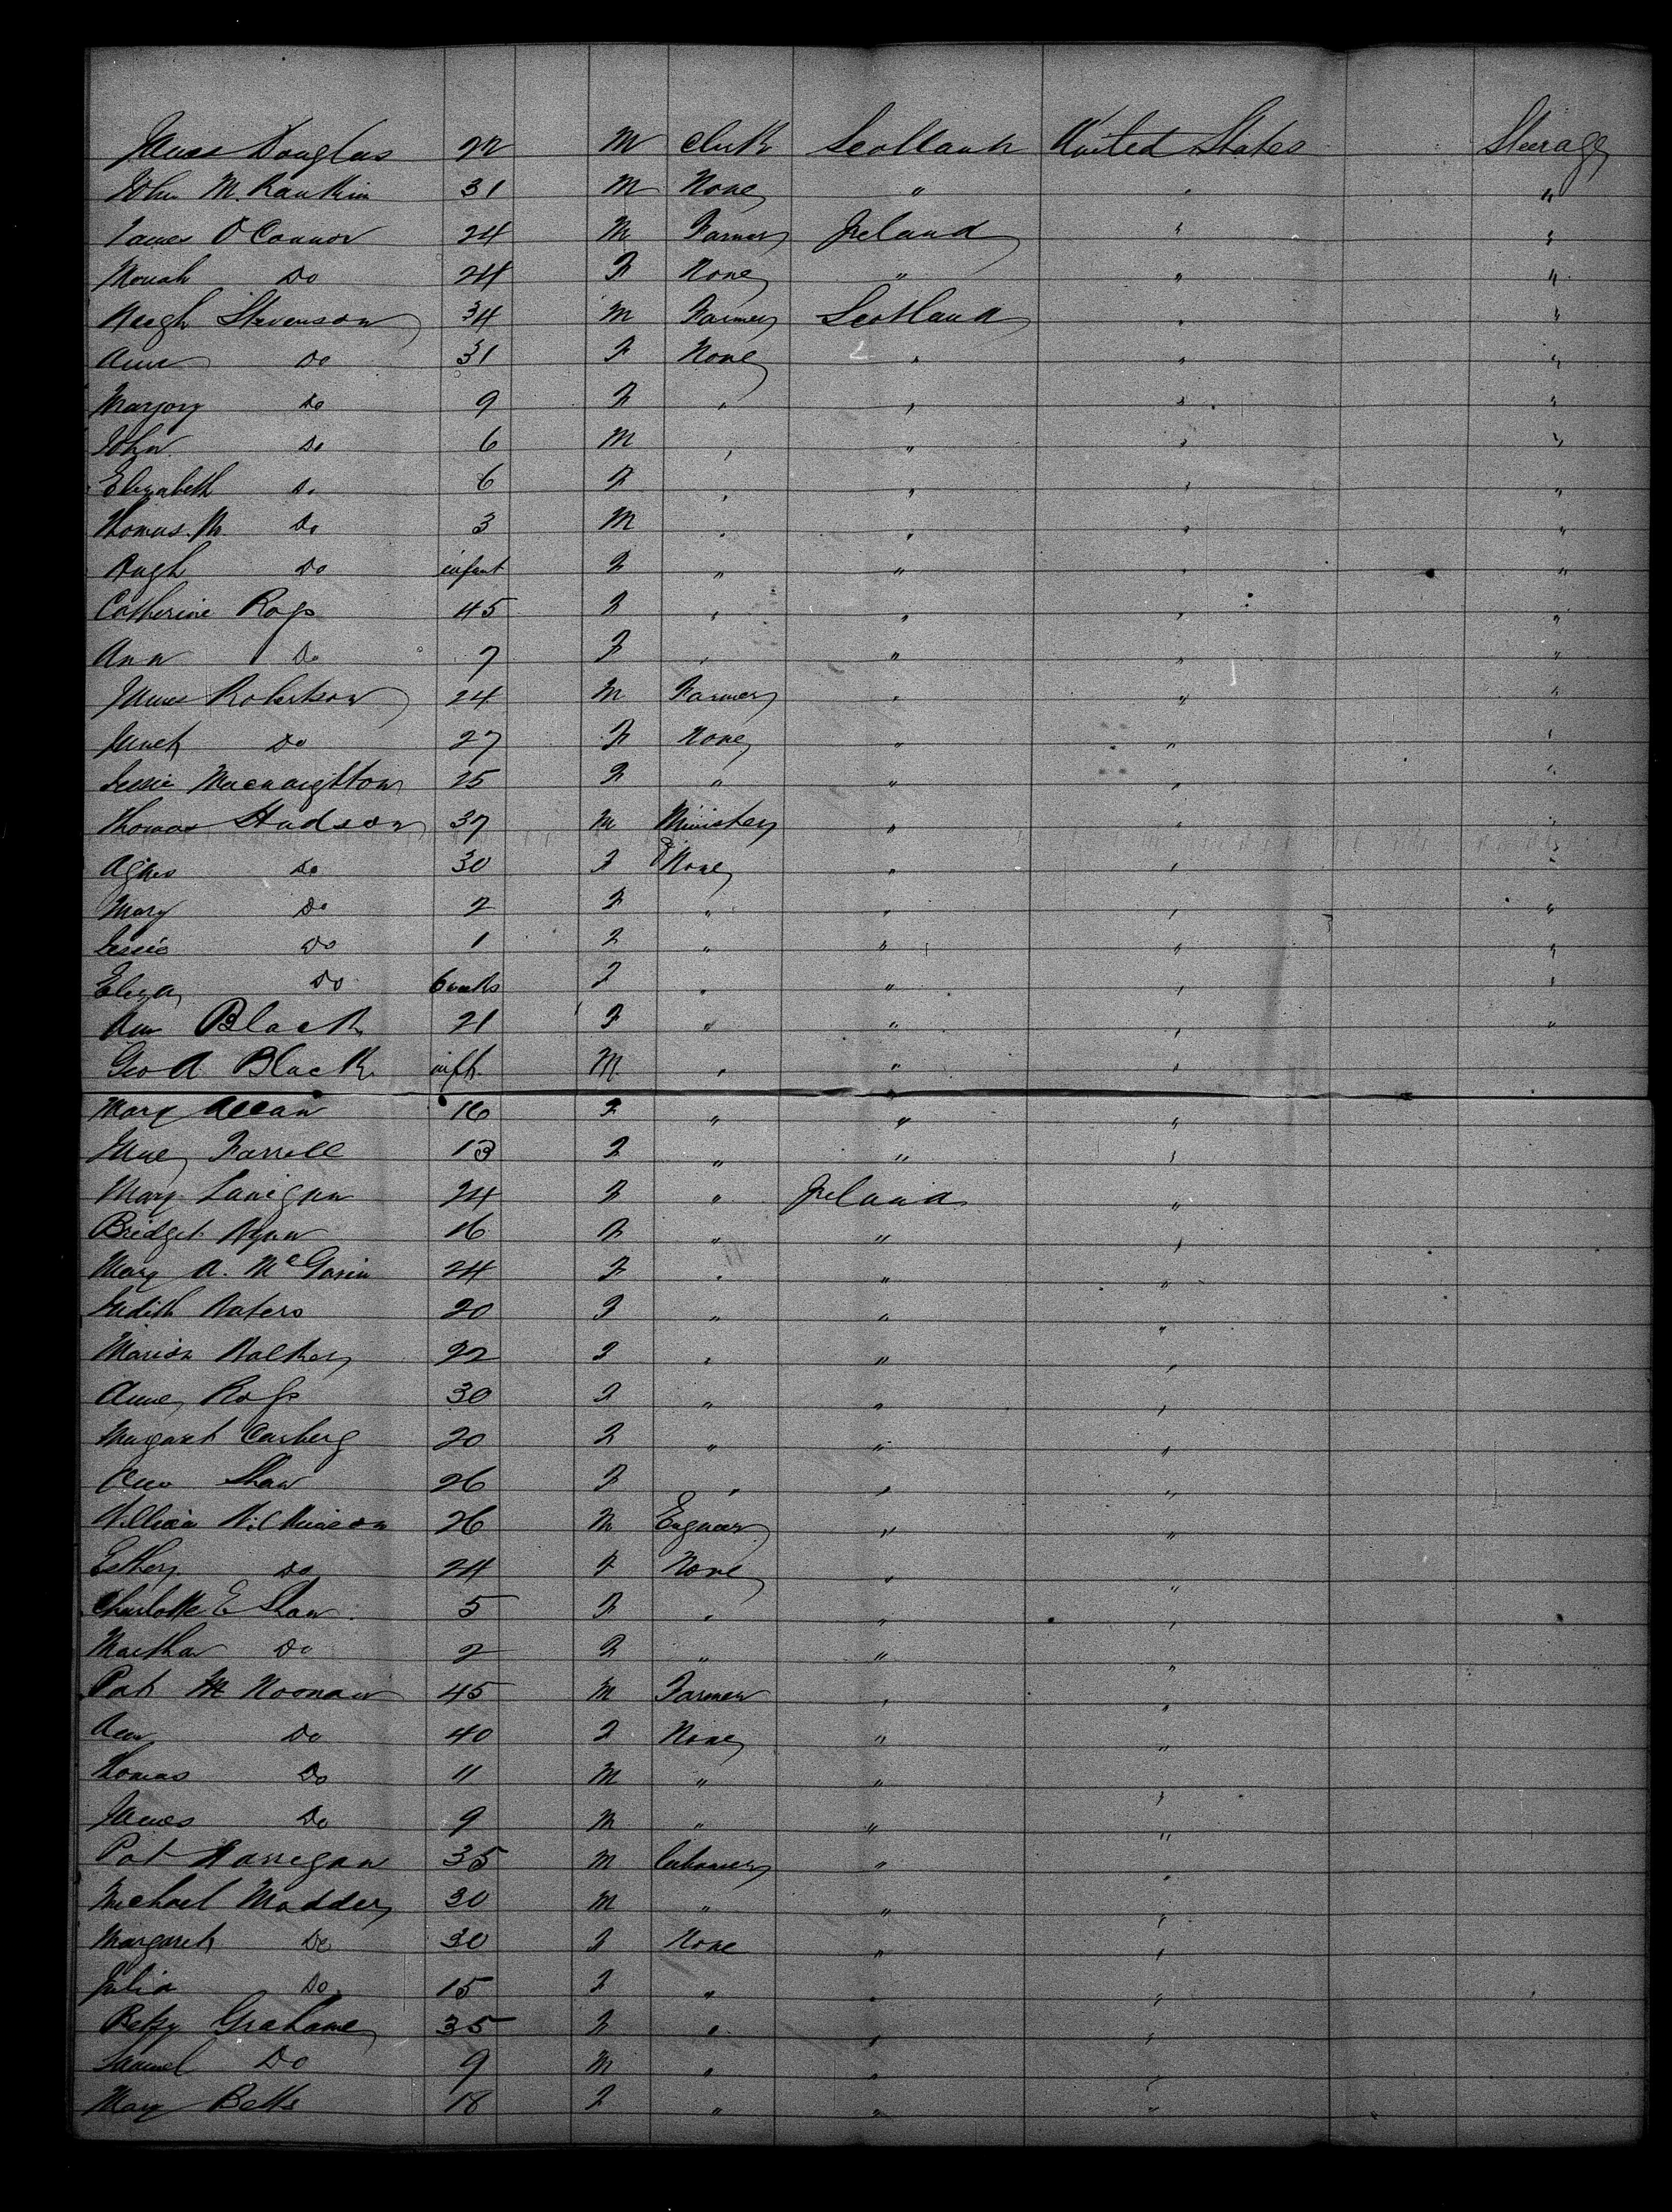 James Douglas 22 M Clerk Scotland United States Steerage
John M. Rankin 31 M None " " "
James O'Connor 24 M Farmer Ireland " "
Norah Do 24 F None " " "
Hugh Stevenson 34 M Farmer Scotland " "
Ann Do 31 F None " " "
Marjory Do 9 F " " " "
John Do 6 M " " " "
Elizabeth Do 6 F " " " "
Thomas. M. Do 3 M " " " "
Hugh Do infant F " " " "
Catherine Ross 45 F " " " "
Ann Do 7 F " " " "
James Robertson 24 M Farmer " " "
Janet Do 27 F None " " "
Jessie Macnaighton 25 F " " " "
Thomas Hudson 37 M Minister " " "
Agnes Do 30 F None " " "
Mary Do 2 F " " " "
Jessie Do 1 F " " " "
Eliza Do 6 weeks F " " " "
Ann Black 21 F " " " "
Geo A Black inft. M " " "
Mary Allan 16 F " " "
Jane Farrell 13 F " " "
Mary Lanigan 24 F " Ireland "
Bridget Ryan 16 F " " "
Mary A. McGavin 24 F " " "
Judith Waters 20 F " " "
Marion Walker 22 F " " "
Anne Ross 30 F " " "
Margaret Carberg 20 F " " "
Ann Shaw 26 F " " "
William Wilkinson 26 M Engineer " "
Esther Do 24 F None " "
Charlotte E Shaw 5 F " " "
Martha Do 2 F " " "
Pat Noonan 45 M Farmer " "
Ann Do 40 F None " "
Thomas Do 11 M " " "
James Do 9 M " " "
Pat Harregan 35 M Labourer " "
Michael Madden 30 M " " "
Margaret Do 30 F None " "
Julia Do 15 F " " "
Betsy Grahame 35 F " " "
Samuel Do 9 M " " "
Mary Betts 18 F " " "